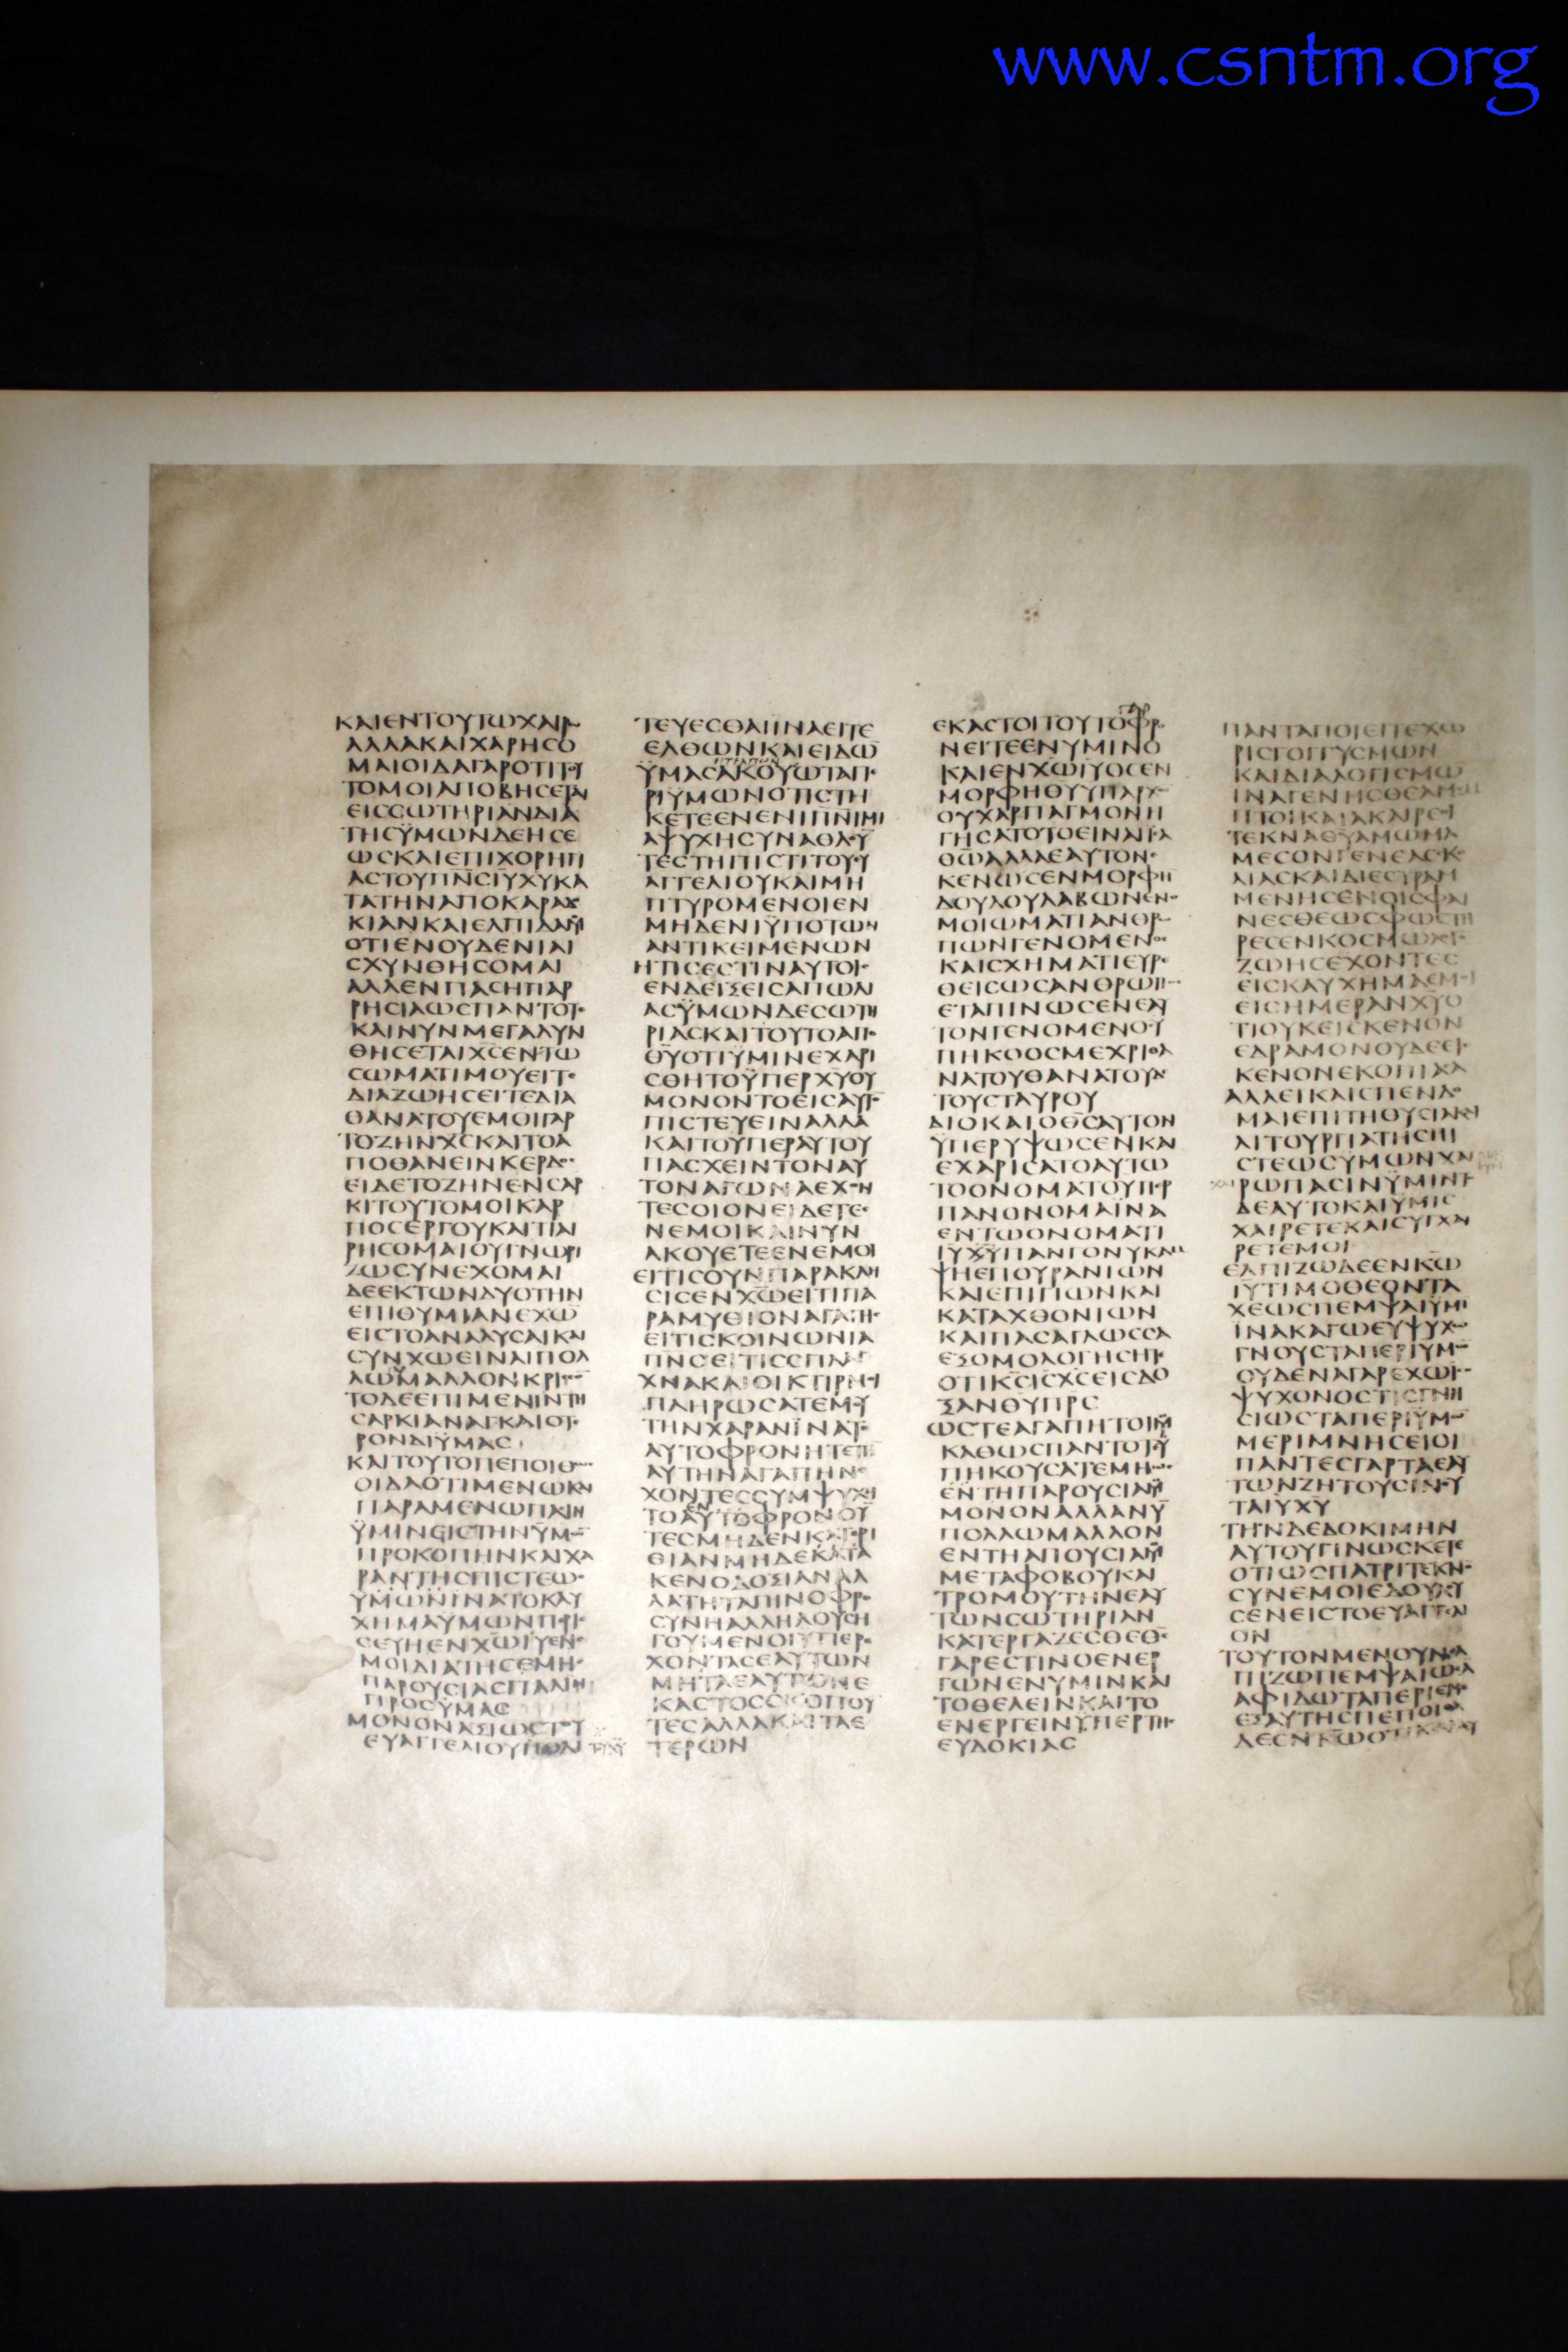 www.csntm.org
ΚΑΙΕΝΤΟΥΤΩΧΑΙΡΩ
ΑΛΛΑΚΑΙΧΑΡΗСΟ
ΜΑΙΟΙΔΑΓΑΡΟΤΙΤΟΥ
ΤΟΜΟΙΑΠΟΒΗСΕΤΑΙ
ΕΙССΩΤΗΡΙΑΝΔΙΑ
ΤΗСΫΜΩΝΔΕΗСΕ
ΩСΚΑΙΕΠΙΧΟΡΗΓΙ
ΑСΤΟΥΠΝ̅СΙΥ̅ΧΥ̅ΚΑ
ΤΑΤΗΝΑΠΟΚΑΡΑΔΟ
ΚΙΑΝΚΑΙΕΛΠΙΔΑΜΟΥ
ΟΤΙΕΝΟΥΔΕΝΙΑΙ
СΧΥΝΘΗСΟΜΑΙ
ΑΛΛΕΝΠΑСΗΠΑΡ
ΡΗСΙΑΩСΠΑΝΤΟΤΕ
ΚΑΙΝΥΝΜΕΓΑΛΥΝ
ΘΗСΕΤΑΙΧ̅С̅ΕΝΤΩ
СΩΜΑΤΙΜΟΥΕΙΤΕ
ΔΙΑΖΩΗСΕΙΤΕΔΙΑ
ΘΑΝΑΤΟΥΕΜΟΙΓΑΡ
ΤΟΖΗΝΧ̅С̅ΚΑΙΤΟΑ
ΠΟΘΑΝΕΙΝΚΕΡΔΟС
ΕΙΔΕΤΟΖΗΝΕΝСΑΡ
ΚΙΤΟΥΤΟΜΟΙΚΑΡ
ΠΟСΕΡΓΟΥΚΑΙΤΙΑΙ
ΡΗСΟΜΑΙΟΥΓΝΩΡΙ
ΖΩСΥΝΕΧΟΜΑΙ
ΔΕΕΚΤΩΝΔΥΟΤΗΝ
ΕΠΙΘΥΜΙΑΝΕΧΩ
ΕΙСΤΟΑΝΑΛΥСΑΙΚΑΙ
СΥΝΧ̅Ω̅ΕΙΝΑΙΠΟΛ
ΛΩΜΑΛΛΟΝΚΡΙССΟΝ
ΤΟΔΕΕΠΙΜΕΝΙΝΤΗ
СΑΡΚΙΑΝΑΓΚΑΙΟΤΕ
ΡΟΝΔΙΫΜΑС
ΚΑΙΤΟΥΤΟΠΕΠΟΙΘΩС
ΟΙΔΑΟΤΙΜΕΝΩΚΑΙ
ΠΑΡΑΜΕΝΩΠΑСΙΝ
ΫΜΙΝΕΙСΤΗΝΫΜΩΝ
ΠΡΟΚΟΠΗΝΚΑΙΧΑ
ΡΑΝΤΗСΠΙСΤΕΩС
ΫΜΩΝΪΝΑΤΟΚΑΥ
ΧΗΜΑΥΜΩΝΠΕΡΙ
СΕΥΗΕΝΧ̅Ω̅ΙΥ̅ΕΝΕ
ΜΟΙΔΙΑΤΗСΕΜΗС
ΠΑΡΟΥСΙΑСΠΑΛΙΝ
ΠΡΟСΥΜΑС
ΜΟΝΟΝΑΞΙΩСΤΟΥ
ΕΥΑΓΓΕΛΙΟΥ
ΤΕΥΕСΘΑΙΙΝΑΕΙΤΕ
ΕΛΘΩΝΚΑΙΕΙΔΩ
ΫΜΑСΑΚΟΥΩΤΑΠΕ
ΡΙΫΜΩΝΟΤΙСΤΗ
ΚΕΤΕΕΝΕΝΙΠΝ̅Ι̅ΜΙ
ΑΨΥΧΗСΥΝΑΘΛΟΥ
ΤΕСΤΗΠΙСΤΙΤΟΥΕΥ
ΑΓΓΕΛΙΟΥΚΑΙΜΗ
ΠΤΥΡΟΜΕΝΟΙΕΝ
ΜΗΔΕΝΙΫΠΟΤΩΝ
ΑΝΤΙΚΕΙΜΕΝΩΝ
ΗΤΙСΕСΤΙΝΑΥΤΟΙС
ΕΝΔΕΙΞΕΙСΑΠΩΛΙ
ΑСΫΜΩΝΔΕСΩΤΗ
ΡΙΑСΚΑΙΤΟΥΤΟΑΠΟ
Θ̅Υ̅ΟΤΙΫΜΙΝΕΧΑΡΙ
СΘΗΤΟΫΠΕΡΧ̅Υ̅ΟΥ
ΜΟΝΟΝΤΟΕΙСΑΥΤΟΝ
ΠΙСΤΕΥΕΙΝΑΛΛΑ
ΚΑΙΤΟΫΠΕΡΑΥΤΟΥ
ΠΑСΧΕΙΝΤΟΝΑΥ
ΤΟΝΑΓΩΝΑΕΧΟΝ
ΤΕСΟΙΟΝΕΙΔΕΤΕΕ
ΝΕΜΟΙΚΑΙΝΥΝ
ΑΚΟΥΕΤΕΕΝΕΜΟΙ
ΕΙΤΙСΟΥΝΠΑΡΑΚΛΗ
СΙСΕΝΧ̅Ω̅ΕΙΤΙΠΑ
ΡΑΜΥΘΙΟΝΑΓΑΠΗС
ΕΙΤΙСΚΟΙΝΩΝΙΑ
ΠΝ̅С̅ΕΙΤΙССΠΛΑΓ
ΧΝΑΚΑΙΟΙΚΤΙΡΜΟΙ
ΠΛΗΡΩСΑΤΕΜΟΥ
ΤΗΝΧΑΡΑΝΪΝΑΤΟ
ΑΥΤΟΦΡΟΝΗΤΕΤΗΝ
ΑΥΤΗΝΑΓΑΠΗΝΕ
ΧΟΝΤΕССΥΜΨΥΧΟΙ
ΤΟΑΥΤΟΦΡΟΝΟΥ
ΤΕСΜΗΔΕΝΚΑΤΕΡΙ
ΘΙΑΝΜΗΔΕΚΑΤΑ
ΚΕΝΟΔΟΞΙΑΝΑΛ
ΛΑΤΗΤΑΠΙΝΟΦΡΟ
СΥΝΗΑΛΛΗΛΟΥСΗ
ΓΟΥΜΕΝΟΙΫΠΕΡΕ
ΧΟΝΤΑСΕΑΥΤΩΝ
ΜΗΤΑΕΑΥΤΩΝΕ
ΚΑСΤΟССΚΟΠΟΥ
ΤΕСΑΛΛΑΚΑΙΤΑΕ
ΤΕΡΩΝ
ΕΚΑСΤΟΙΤΟΥΤΟΦΡΟ
ΝΕΙΤΕΕΝΥΜΙΝΟ
ΚΑΙΕΝΧ̅Ω̅ΙΥ̅ΟСΕΝ
ΜΟΡΦΗΘ̅Υ̅ΥΠΑΡΧΩΝ
ΟΥΧΑΡΠΑΓΜΟΝΗ
ΓΗСΑΤΟΤΟΕΙΝΑΙΙСΑ
Θ̅Ω̅ΑΛΛΑΕΑΥΤΟΝΕ
ΚΕΝΩСΕΝΜΟΡΦΗΝ
ΔΟΥΛΟΥΛΑΒΩΝΕΝΟ
ΜΟΙΩΜΑΤΙΑΝΘΡΩ
ΠΩΝΓΕΝΟΜΕΝΟС
ΚΑΙСΧΗΜΑΤΙΕΥΡΕ
ΘΕΙСΩСΑΝΘΡΩΠΟС
ΕΤΑΠΙΝΩСΕΝΕΑΥ
ΤΟΝΓΕΝΟΜΕΝΟСΥ
ΠΗΚΟΟСΜΕΧΡΙΘΑ
ΝΑΤΟΥΘΑΝΑΤΟΥΔΕ
ΤΟΥСΤΑΥΡΟΥ
ΔΙΟΚΑΙΟΘ̅С̅ΑΥΤΟΝ
ΫΠΕΡΥΨΩСΕΝΚΑΙ
ΕΧΑΡΙСΑΤΟΑΥΤΩ
ΤΟΟΝΟΜΑΤΟΥΠΕΡ
ΠΑΝΟΝΟΜΑΪΝΑ
ΕΝΤΩΟΝΟΜΑΤΙ
ΙΥ̅ΧΥ̅ΠΑΝΓΟΝΥΚΑΜ
ΨΗΕΠΟΥΡΑΝΙΩΝ
ΚΑΙΕΠΙΓΙΩΝΚΑΙ
ΚΑΤΑΧΘΟΝΙΩΝ
ΚΑΙΠΑСΑΓΛΩССΑ
ΕΞΟΜΟΛΟΓΗСΗΤΕ
ΟΤΙΚ̅С̅Ι̅С̅Χ̅С̅ΕΙСΔΟ
ΞΑΝΘ̅Υ̅Π̅Ρ̅С̅
ΩСΤΕΑΓΑΠΗΤΟΙΜΟΥ
ΚΑΘΩСΠΑΝΤΟΤΕΥ
ΠΗΚΟΥСΑΤΕΜΗΩС
ΕΝΤΗΠΑΡΟΥСΙΑΜΟΥ
ΜΟΝΟΝΑΛΛΑΝΥ
ΠΟΛΛΩΜΑΛΛΟΝ
ΕΝΤΗΑΠΟΥСΙΑΜΟΥ
ΜΕΤΑΦΟΒΟΥΚΑΙ
ΤΡΟΜΟΥΤΗΝΕΑΥ
ΤΩΝСΩΤΗΡΙΑΝ
ΚΑΤΕΡΓΑΖΕСΘΕΘ̅С̅
ΓΑΡΕСΤΙΝΟΕΝΕΡ
ΓΩΝΕΝΥΜΙΝΚΑΙ
ΤΟΘΕΛΕΙΝΚΑΙΤΟ
ΕΝΕΡΓΕΙΝΥΠΕΡΤΗС
ΕΥΔΟΚΙΑС
ΠΑΝΤΑΠΟΙΕΙΤΕΧΩ
ΡΙСΓΟΓΓΥСΜΩΝ
ΚΑΙΔΙΑΛΟΓΙСΜΩ
ΙΝΑΓΕΝΗСΘΕΑΜΕΜ
ΠΤΟΙΚΑΙΑΚΑΙΡΕΟΙ
ΤΕΚΝΑΘ̅Υ̅ΑΜΩΜΑ
ΜΕСΟΝΓΕΝΕΑССΚΟ
ΛΙΑСΚΑΙΔΙΕСΤΡΑΜ
ΜΕΝΗСΕΝΟΙСΦΑΙ
ΝΕСΘΕΩСΦΩСΤΗ
ΡΕСΕΝΚΟСΜΩΛΟΓΟΝ
ΖΩΗСΕΧΟΝΤΕС
ΕΙСΚΑΥΧΗΜΑΕΜΟΙ
ΕΙСΗΜΕΡΑΝΧ̅Υ̅Ο
ΤΙΟΥΚΕΙСΚΕΝΟΝ
ΕΔΡΑΜΟΝΟΥΔΕΕΙС
ΚΕΝΟΝΕΚΟΠΙΑСΑ
ΑΛΛΕΙΚΑΙСΠΕΝΔΟ
ΜΑΙΕΠΙΤΗΘΥСΙΑΚΑΙ
ΛΙΤΟΥΡΓΙΑΤΗСΠΙ
СΤΕΩСΥΜΩΝΧΑΙ
ΡΩΠΑСΙΝΫΜΙΝΤΟ
ΔΕΑΥΤΟΚΑΙΫΜΙС
ΧΑΙΡΕΤΕΚΑΙСΥΓΧΑΙ
ΡΕΤΕΜΟΙ
ΕΛΠΙΖΩΔΕΕΝΚ̅Ω̅
ΙΥ̅ΤΙΜΟΘΕΟΝΤΑ
ΧΕΩСΠΕΜΨΑΙΫΜΙ
ΪΝΑΚΑΓΩΕΥΨΥΧΩ
ΓΝΟΥСΤΑΠΕΡΙΫΜΩΝ
ΟΥΔΕΝΑΓΑΡΕΧΩΙСΟ
ΨΥΧΟΝΟСΤΙСΓΝΗ
СΙΩСΤΑΠΕΡΙΫΜΩΝ
ΜΕΡΙΜΝΗСΕΙΟΙ
ΠΑΝΤΕСΓΑΡΤΑΕΑΥ
ΤΩΝΖΗΤΟΥСΙΝΟΥ
ΤΑΙΥ̅ΧΥ̅
ΤΗΝΔΕΔΟΚΙΜΗΝ
ΑΥΤΟΥΓΙΝΩСΚΕΤΕ
ΟΤΙΩСΠΑΤΡΙΤΕΚΝΟ
СΥΝΕΜΟΙΕΔΟΥΛΕΥ
СΕΝΕΙСΤΟΕΥΑΓΓΕΛΙ
ΟΝ
ΤΟΥΤΟΝΜΕΝΟΥΝΕΛ
ΠΙΖΩΠΕΜΨΑΙΩСΑ
ΑΦΙΔΩΤΑΠΕΡΙΕΜΕ
ΕΞΑΥΤΗСΠΕΠΟΙΘΑ
ΔΕΕΝΚ̅Ω̅ΟΤΙΚΑΙΑΥ